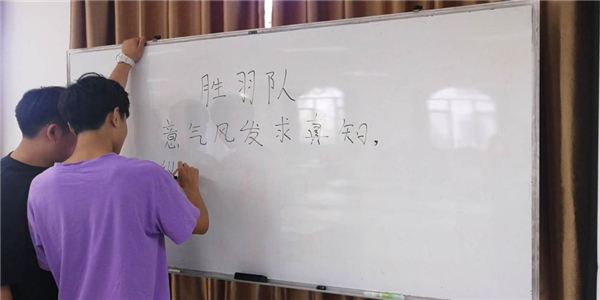 胜羽队
意气风发求真知，